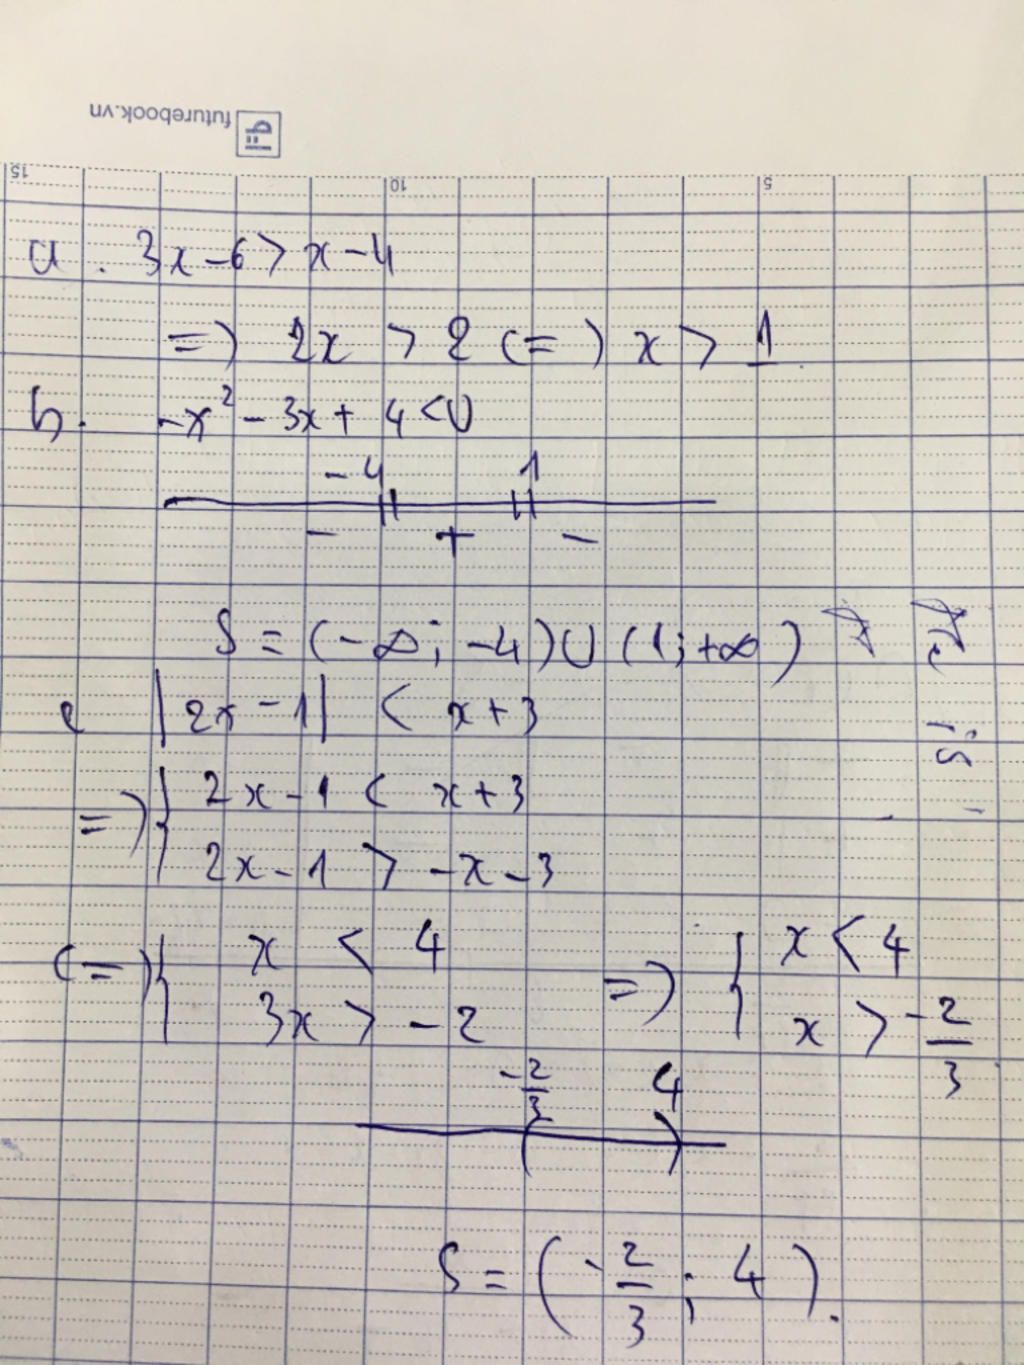 futurebook.vn
15 10 5
a. 3x-6 > x-4
=> 2x > 2 <=> x > 1
b. -x² - 3x + 4 < 0
-4 1
- + -
S = (-∞; -4) ∪ (1; +∞)
c |2x-1| < x+3
=> { 2x-1 < x+3
2x-1 > -x-3
<=> { x < 4 => { x < 4
3x > -2 x > -2/3
-2/3 4
( )
S = (-2/3; 4).